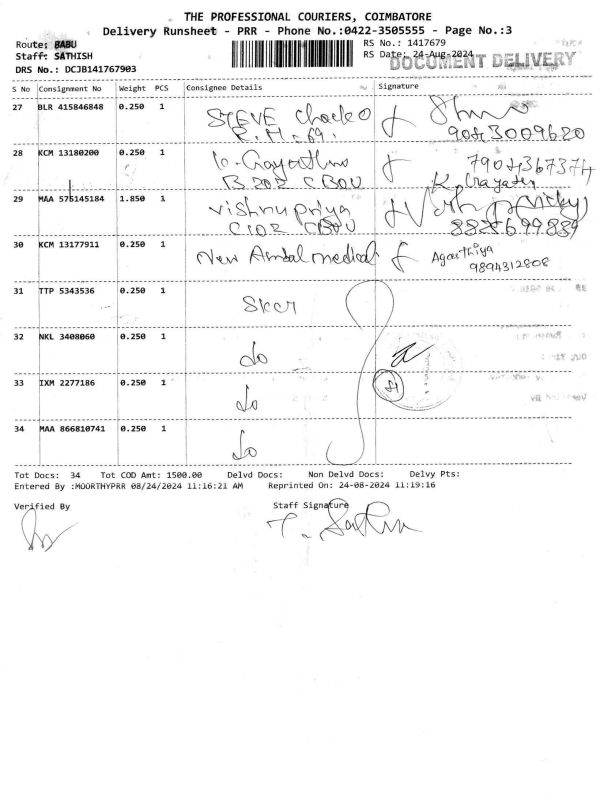 THE PROFESSIONAL COURIERS, COIMBATORE
Delivery Runsheet - PRR - Phone No.:0422-3505555 - Page No.:3
Route: BABU
RS No.: 1417679
Staff: SATHISH
RS Date: 24-Aug-2024
DOCUMENT DELIVERY
DRS No.: DCJB141767903
S No Consignment No Weight PCS Consignee Details Signature
27 BLR 415846848 0.250 1 STEVE Chacko
R.H-69.
28 KCM 13180200 0.250 1 K. Gayathri
B202 CBOU K. Gayatri
29 MAA 576145184 1.850 1 Vishnupriya
C102 CBOU
30 KCM 13177911 0.250 1 New Amdal medical Agasthiya
9894312808
31 TTP 5343536 0.250 1 SKCT
32 NKL 3408060 0.250 1 do
33 IXM 2277186 0.250 1 do
34 MAA 866810741 0.250 1 do
Tot Docs: 34 Tot COD Amt: 1500.00 Delvd Docs: Non Delvd Docs: Delvy Pts:
Entered By :MOORTHYPRR 08/24/2024 11:16:21 AM Reprinted On: 24-08-2024 11:19:16
Verified By Staff Signature
T. Sathis